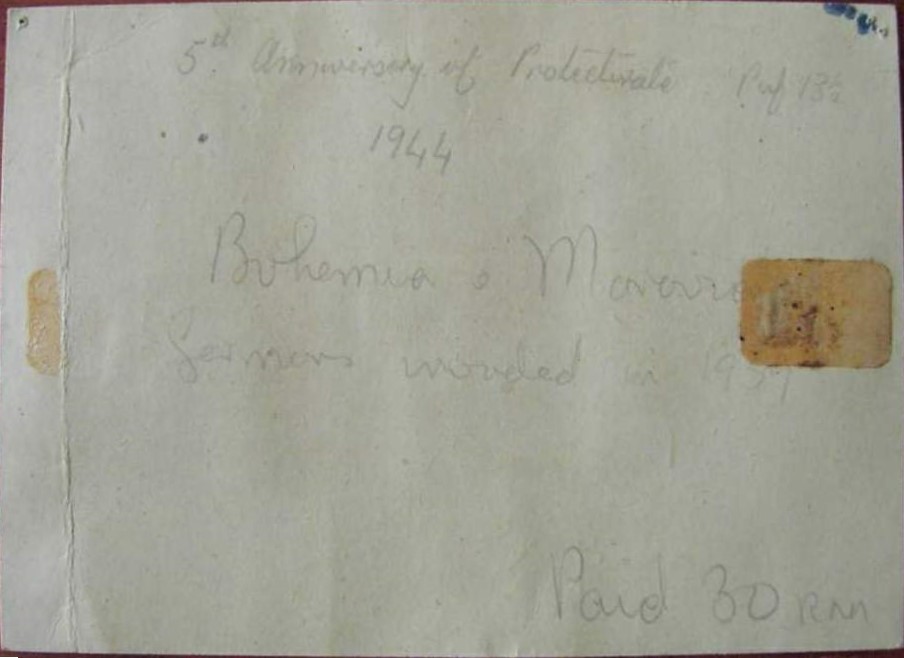 5th Anniversary of Protectorate Perf 13½
1944
Bohemia & Moravia
Germans invaded in 1939
Paid 30 RM